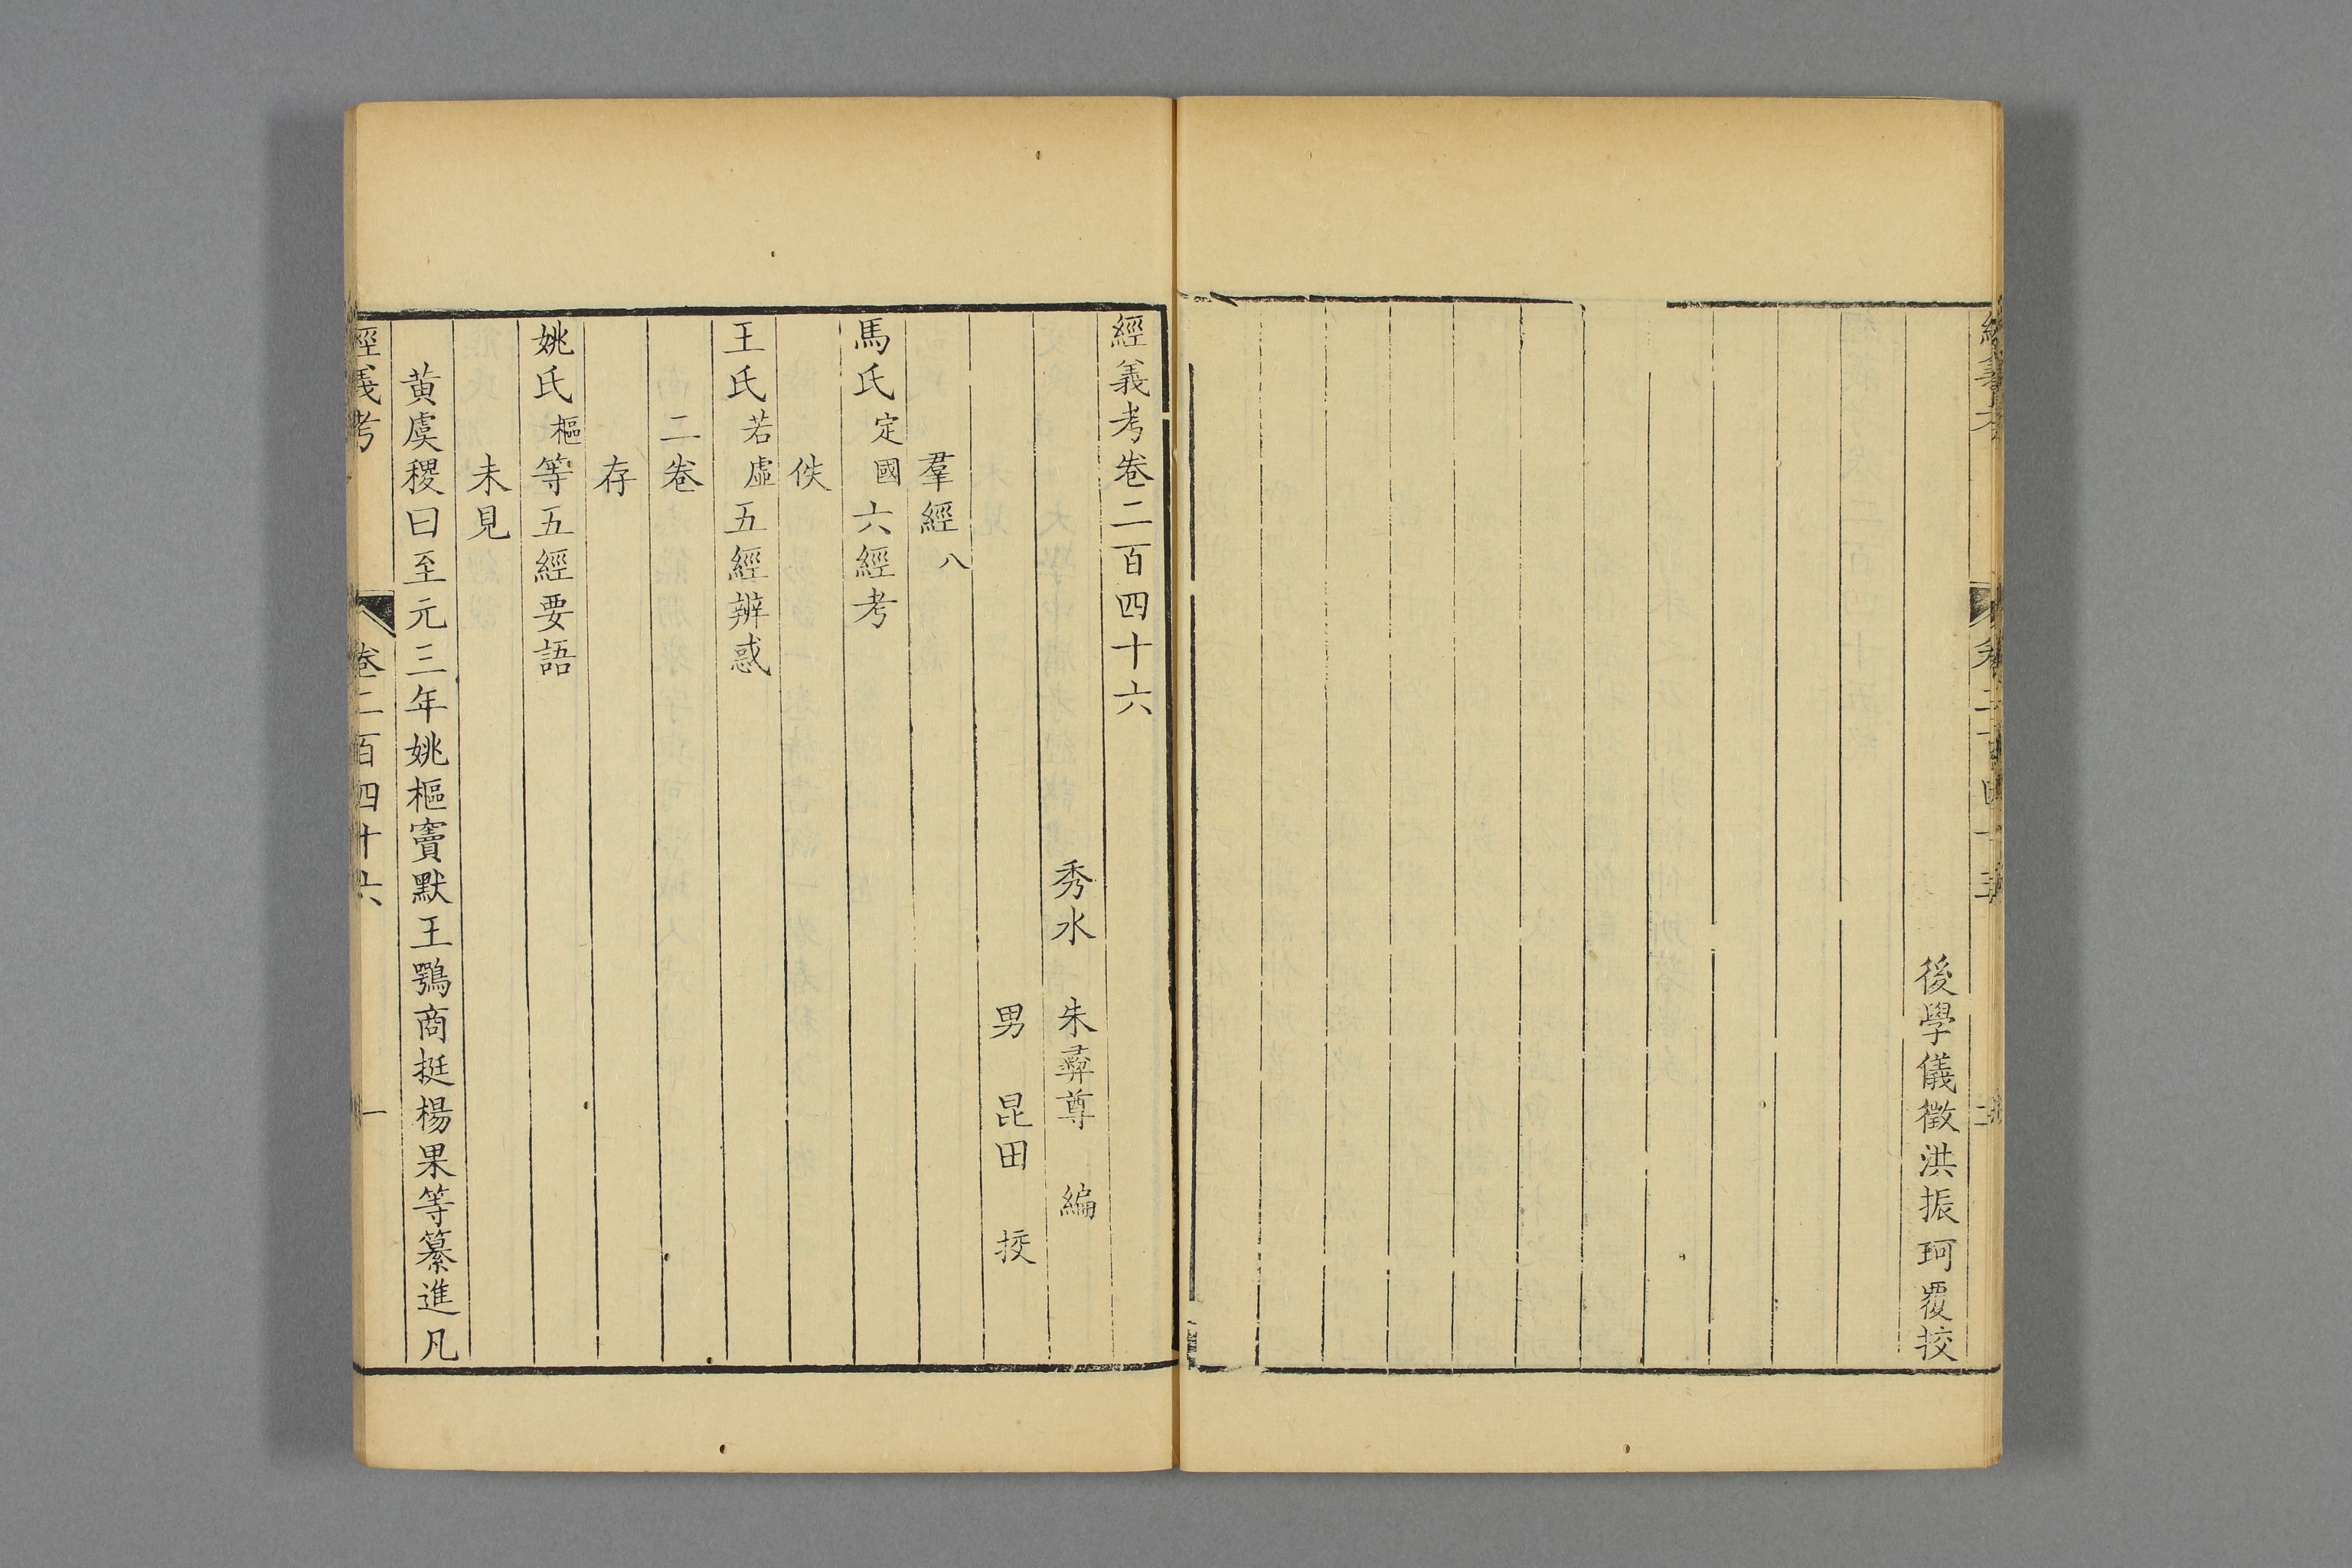 後學儀徵洪振珂覆挍
經義考卷二百四十六
秀水 朱彝尊 編
男 昆田 挍
羣經八
馬氏定國六經考
佚
王氏若虛五經辨惑
二卷
存
姚氏樞等五經要語
未見
黃虞稷曰至元三年姚樞竇默王鶚商挺楊果等纂進凡
經義考 卷二百四十六 一